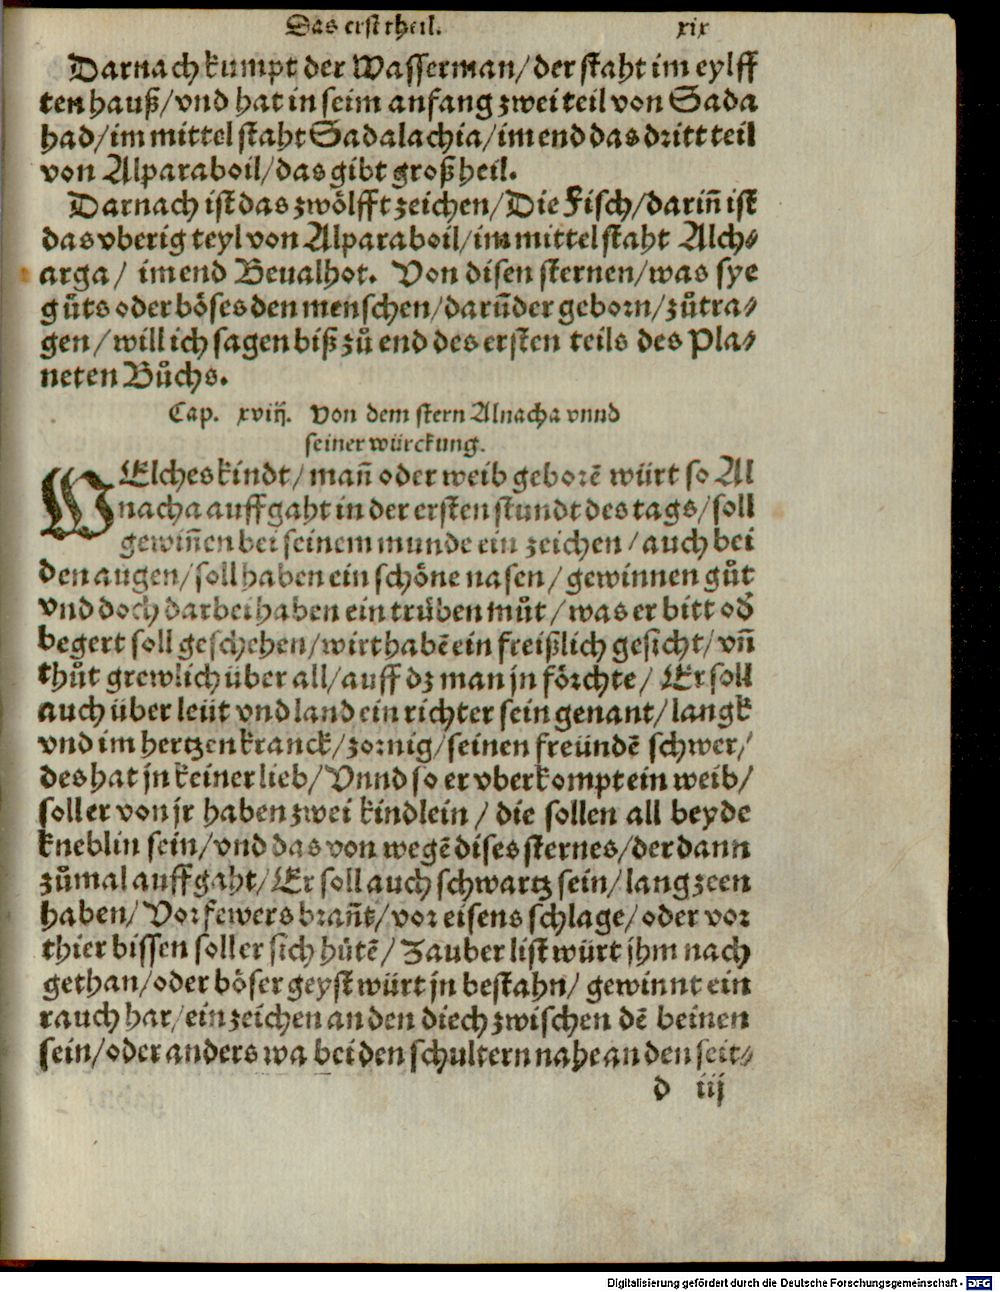 Das erst theil. xix
Darnach kumpt der Wasserman/ der staht im eylff
ten hauß/ vnd hat in seim anfang zwei teil von Sada
had/ im mittel staht Sadalachia/ im end das dritt teil
von Alparaboil/ das gibt groß heil.
Darnach ist das zwölfft zeichen/ Die Fisch/ dariñ ist
das vberig teyl von Alparaboil/ im mittel staht Alch⸗
arga/ im end Beualhot. Von disen sternen/ was sye
gůts oder böses den menschen/ darũder geborn/ zůtra⸗
gen/ will ich sagen biß zů end des ersten teils des Pla⸗
neten Bůchs.
Cap. xviij. Von dem stern Alnacha vnnd
seiner würckung.
WElches kindt/ mañ oder weib geborẽ würt so Al
nacha auffgaht in der ersten stundt des tags/ soll
gewiñen bei seinem munde ein zeichen/ auch bei
den augen/ soll haben ein schöne nasen/ gewinnen gůt
vnd doch darbei haben ein trüben můt/ was er bitt od
begert soll geschehen/ wirt habẽ ein freißlich gesicht/ vñ
thůt grewlich über all/ auff dz man jn förchte/ Er soll
auch über leüt vnd land ein richter sein genant/ langk
vnd im hertzen kranck/ zornig/ seinen freündẽ schwer/
des hat jn keiner lieb/ Vnnd so er vberkompt ein weib/
soll er von jr haben zwei kindlein/ die sollen all beyde
kneblin sein/ vnd das von wegẽ dises sternes/ der dann
zůmal auffgaht/ Er soll auch schwartz sein/ lang zeen
haben/ Vor fewers brañt/ vor eisens schlage/ oder vor
thier bissen soll er sich hütẽ/ Zauber list würt jhm nach
gethan/ oder böser geyst würt jn bestahn/ gewinnt ein
rauch har/ ein zeichen an den diech zwischen dẽ beinen
sein/ oder anders wa bei den schultern nahe an den seit⸗
d iij
Digitalisierung gefördert durch die Deutsche Forschungsgemeinschaft - DFG